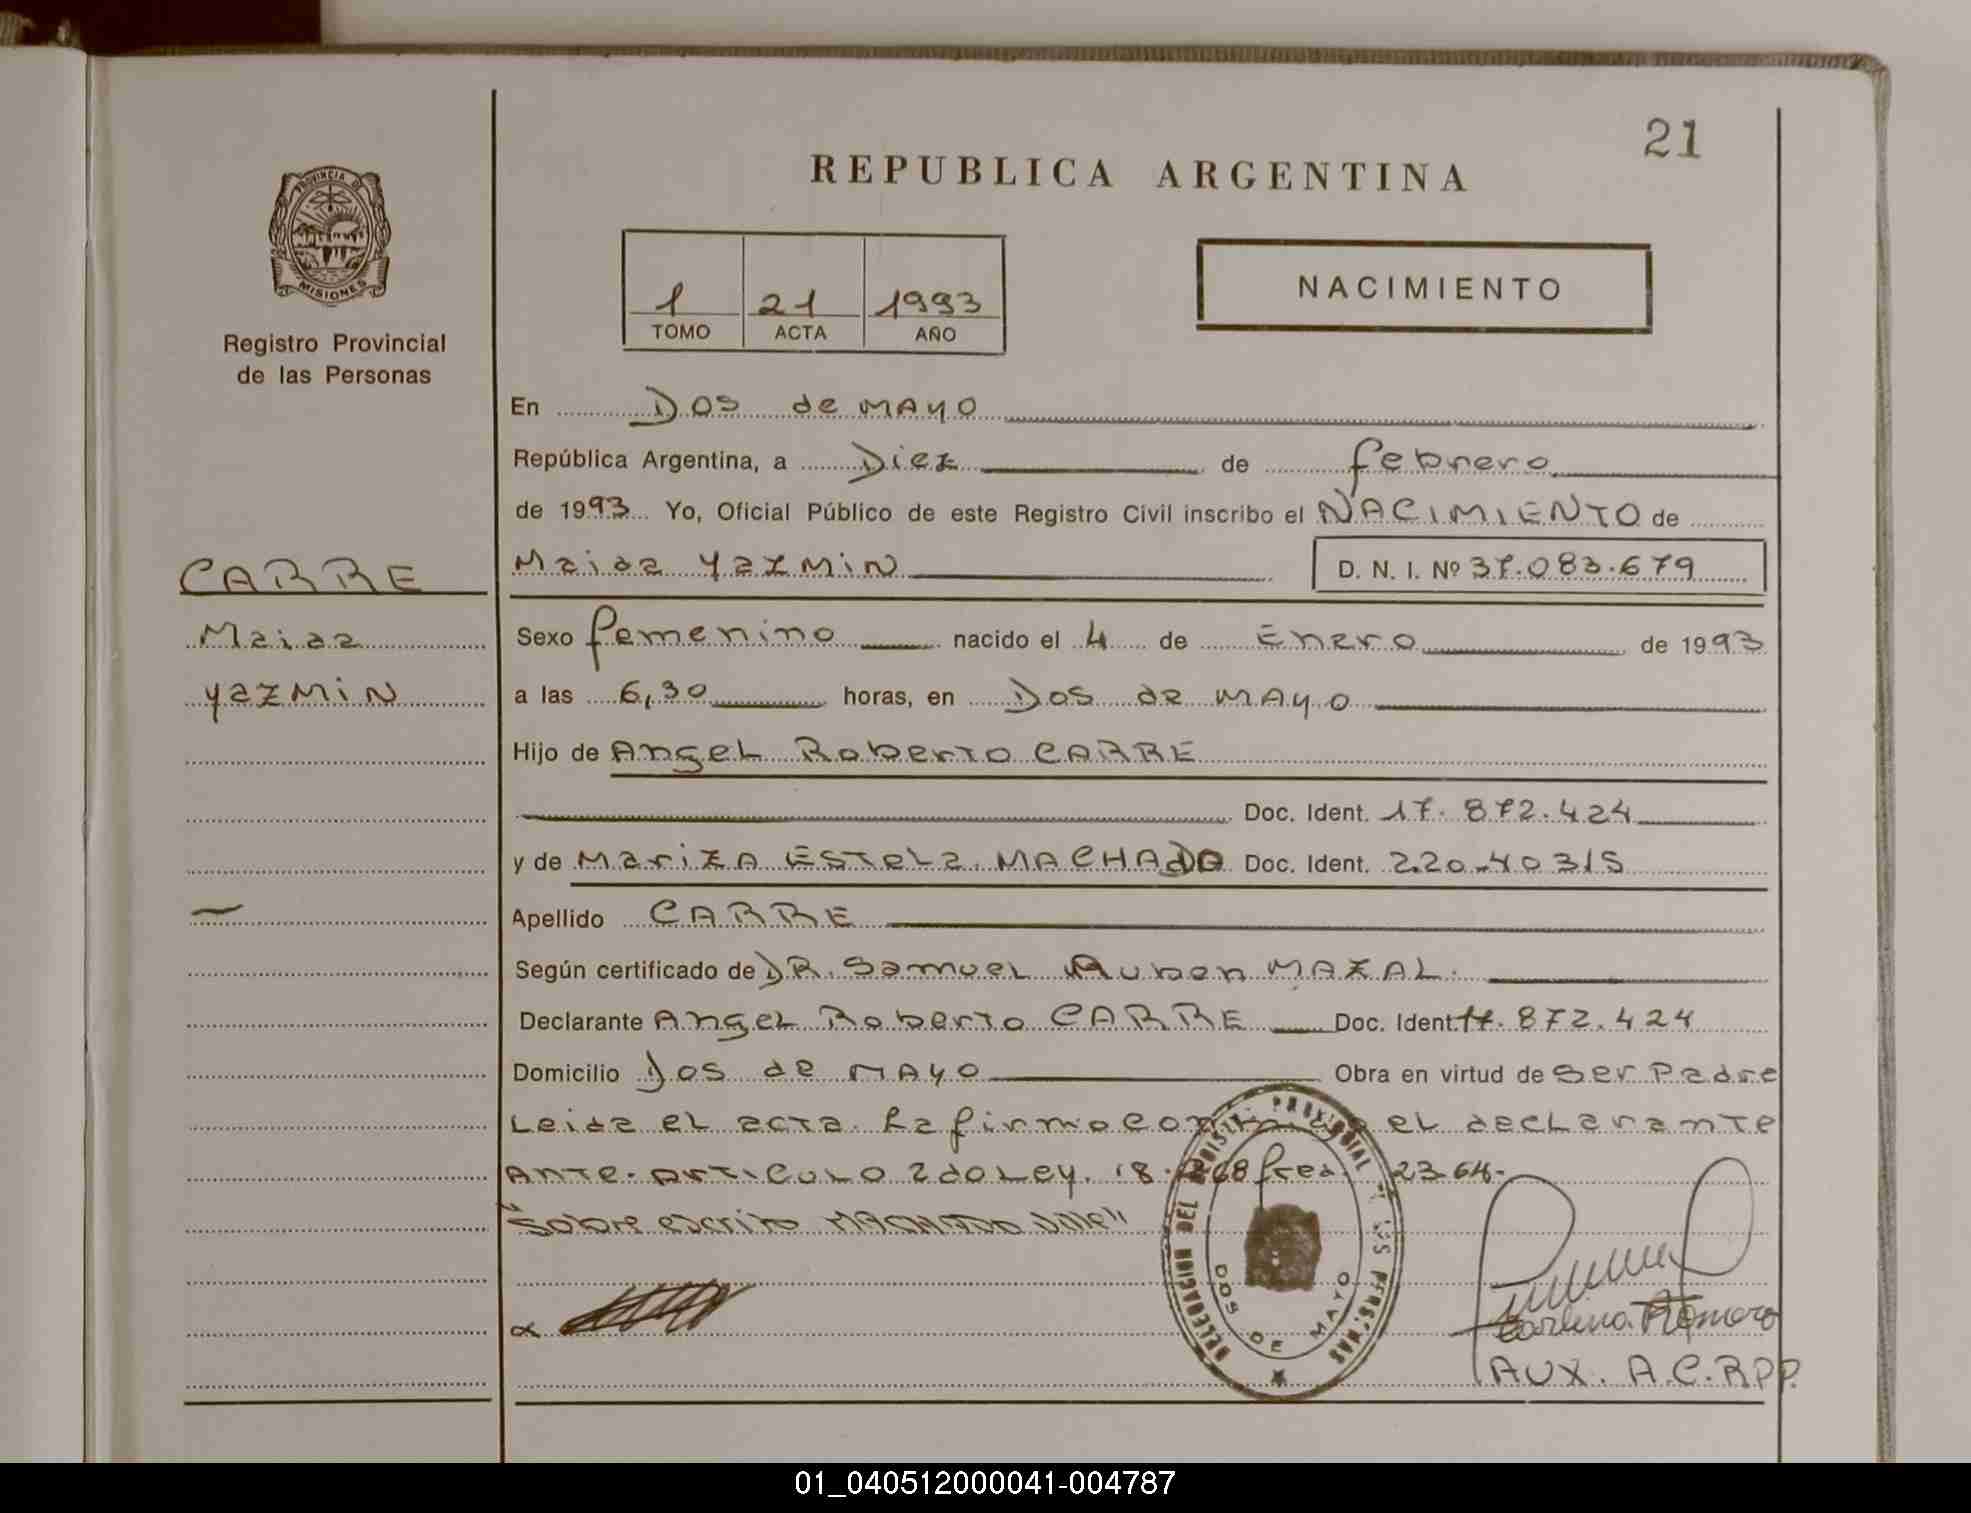 21
REPUBLICA ARGENTINA
PROVINCIA DE
MISIONES
Registro Provincial
de las Personas
1 21 1993
TOMO ACTA AÑO
NACIMIENTO
En Dos de MAYO
República Argentina, a Diez de febrero
de 1993 Yo, Oficial Público de este Registro Civil inscribo el NACIMIENTO de
CARRE
Maiaa YazMiN D. N. I. Nº 37.083.679
Maiaa
Sexo femenino nacido el 4 de Enero de 1993
YazMiN
a las 6,30 horas, en Dos de MAYO
Hijo de Angel Roberto CARRE
Doc. Ident. 17.872.424
y de MarizA EStela MACHAdO Doc. Ident. 220.40315
Apellido CARRE
Según certificado de DR. Samuel Ruben MAZAL.
Declarante Angel Roberto CARRE Doc. Ident. 17.872.424
Domicilio Dos de MAYO Obra en virtud de ser Padre
Leida el acta La firmo el declarante
Ante. Articulo 2do Ley. 18. 2364.
"Sobre escrito MACHADO
DELEGACION DEL REGISTRO PROVINCIAL DE LAS PERSONAS
DOS DE MAYO
Romero
AUX. A.C.RPP.
01_040512000041-004787